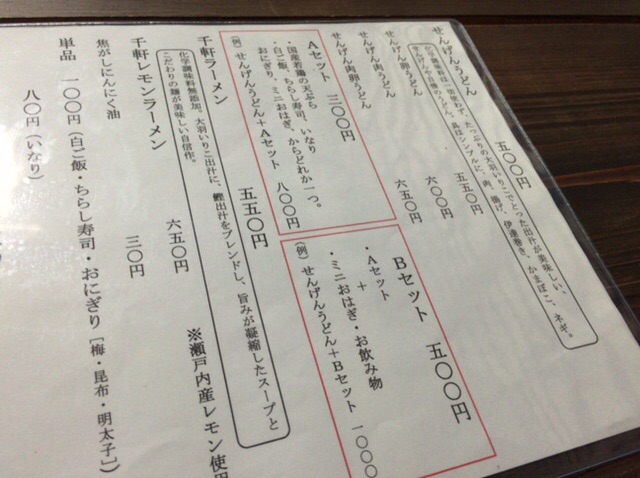 せんげんうどん 五〇〇円
化学調味料は一切使わず、たっぷりの大羽いりこでとった出汁が美味しい、
せんげんや自慢のうどん。具はシンプルに、肉、揚げ、伊達巻き、かまぼこ、ネギ。
せんげん卵うどん 五五〇円
せんげん肉うどん 六〇〇円
せんげん肉卵うどん 六五〇円
Aセット 三〇〇円
・国産若鶏の天ぷら
・白ご飯、ちらし寿司、いなり
おにぎり、ミニおはぎ、からどれか一つ。
(例) せんげんうどん+Aセット 八〇〇円
Bセット 五〇〇円
・Aセット
+
・ミニおはぎ・お飲み物
(例) せんげんうどん+Bセット 一〇〇〇
千軒ラーメン 五五〇円
化学調味料無添加、大羽いりこ出汁に、鰹出汁をブレンドし、旨みが凝縮したスープと
こだわりの麺が美味しい自信作。
千軒レモンラーメン 六五〇円
※瀬戸内産レモン使用
焦がしにんにく油 三〇円
単品 一〇〇円(白ご飯・ちらし寿司・おにぎり[梅・昆布・明太子])
八〇円(いなり)